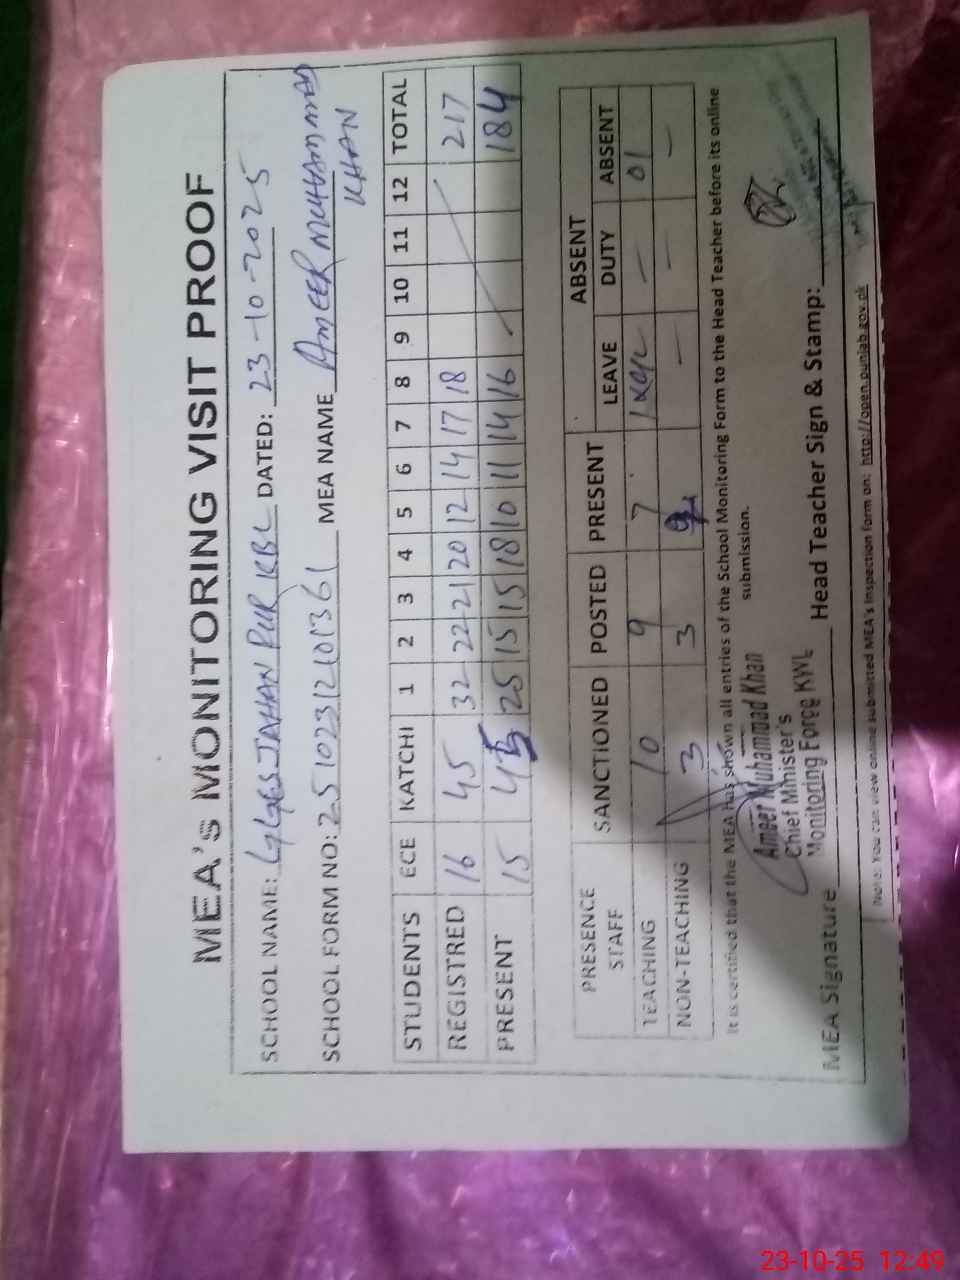 MEA's MONITORING VISIT PROOF
SCHOOL NAME: JAHAN PUR KBL DATED: 23-10-2025
SCHOOL FORM NO: 2510231210136 MEA NAME AMEER MUHAMMAD KHAN
STUDENTS ECE KATCHI 1 2 3 4 5 6 7 8 9 10 11 12 TOTAL
REGISTRED 16 45 32 22 21 20 12 14 17 18 217
PRESENT 15 45 25 15 15 18 10 11 14 16 184
PRESENCE STAFF SANCTIONED POSTED PRESENT ABSENT
LEAVE DUTY ABSENT
TEACHING 10 9 7 — 01
NON-TEACHING 3 3 — — —
It is certified that the MEA has shown all entries of the School Monitoring Form to the Head Teacher before its online
submission.
Ameer Muhammad Khan
Chief Minister's
Monitoring Force KWL
MEA Signature Head Teacher Sign & Stamp:
Note: You can view online submitted MEA's Inspection form on: http://open.punjab.gov.pk
23-10-25 12:49